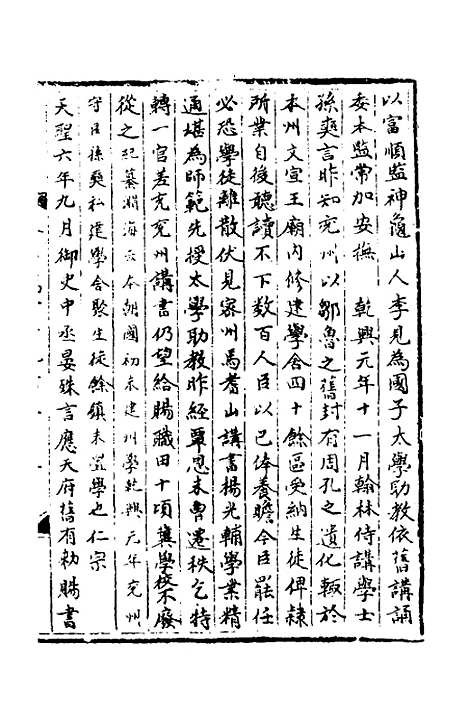 以富順監神龜山人李見為國子太學助教依舊講誦
委本監常加安撫　乾興元年十一月翰林侍講學士
孫奭言昨知兖州以鄒魯之舊封有周孔之遺化輙於
本州文宣王廟內修建學舍四十餘區受納生徒俾隸
所業自後聽讀不下数百人臣以己俸養瞻今臣罷任
必恐學徒離散伏見密州馬耆山講書楊光輔學業精
通堪為師範先授太學助教昨經覃恩未曹遷秩乞特
轉一官差充兖州講書仍望給賜職田十項兾學校不廢
從之紀纂淵海云本朝國初未建州學乾興元年兖州
守臣孫奭私建學舍聚生徒餘鎮未置學也仁宗
天聖六年九月御史中丞晏殊言應天府舊有勑賜書